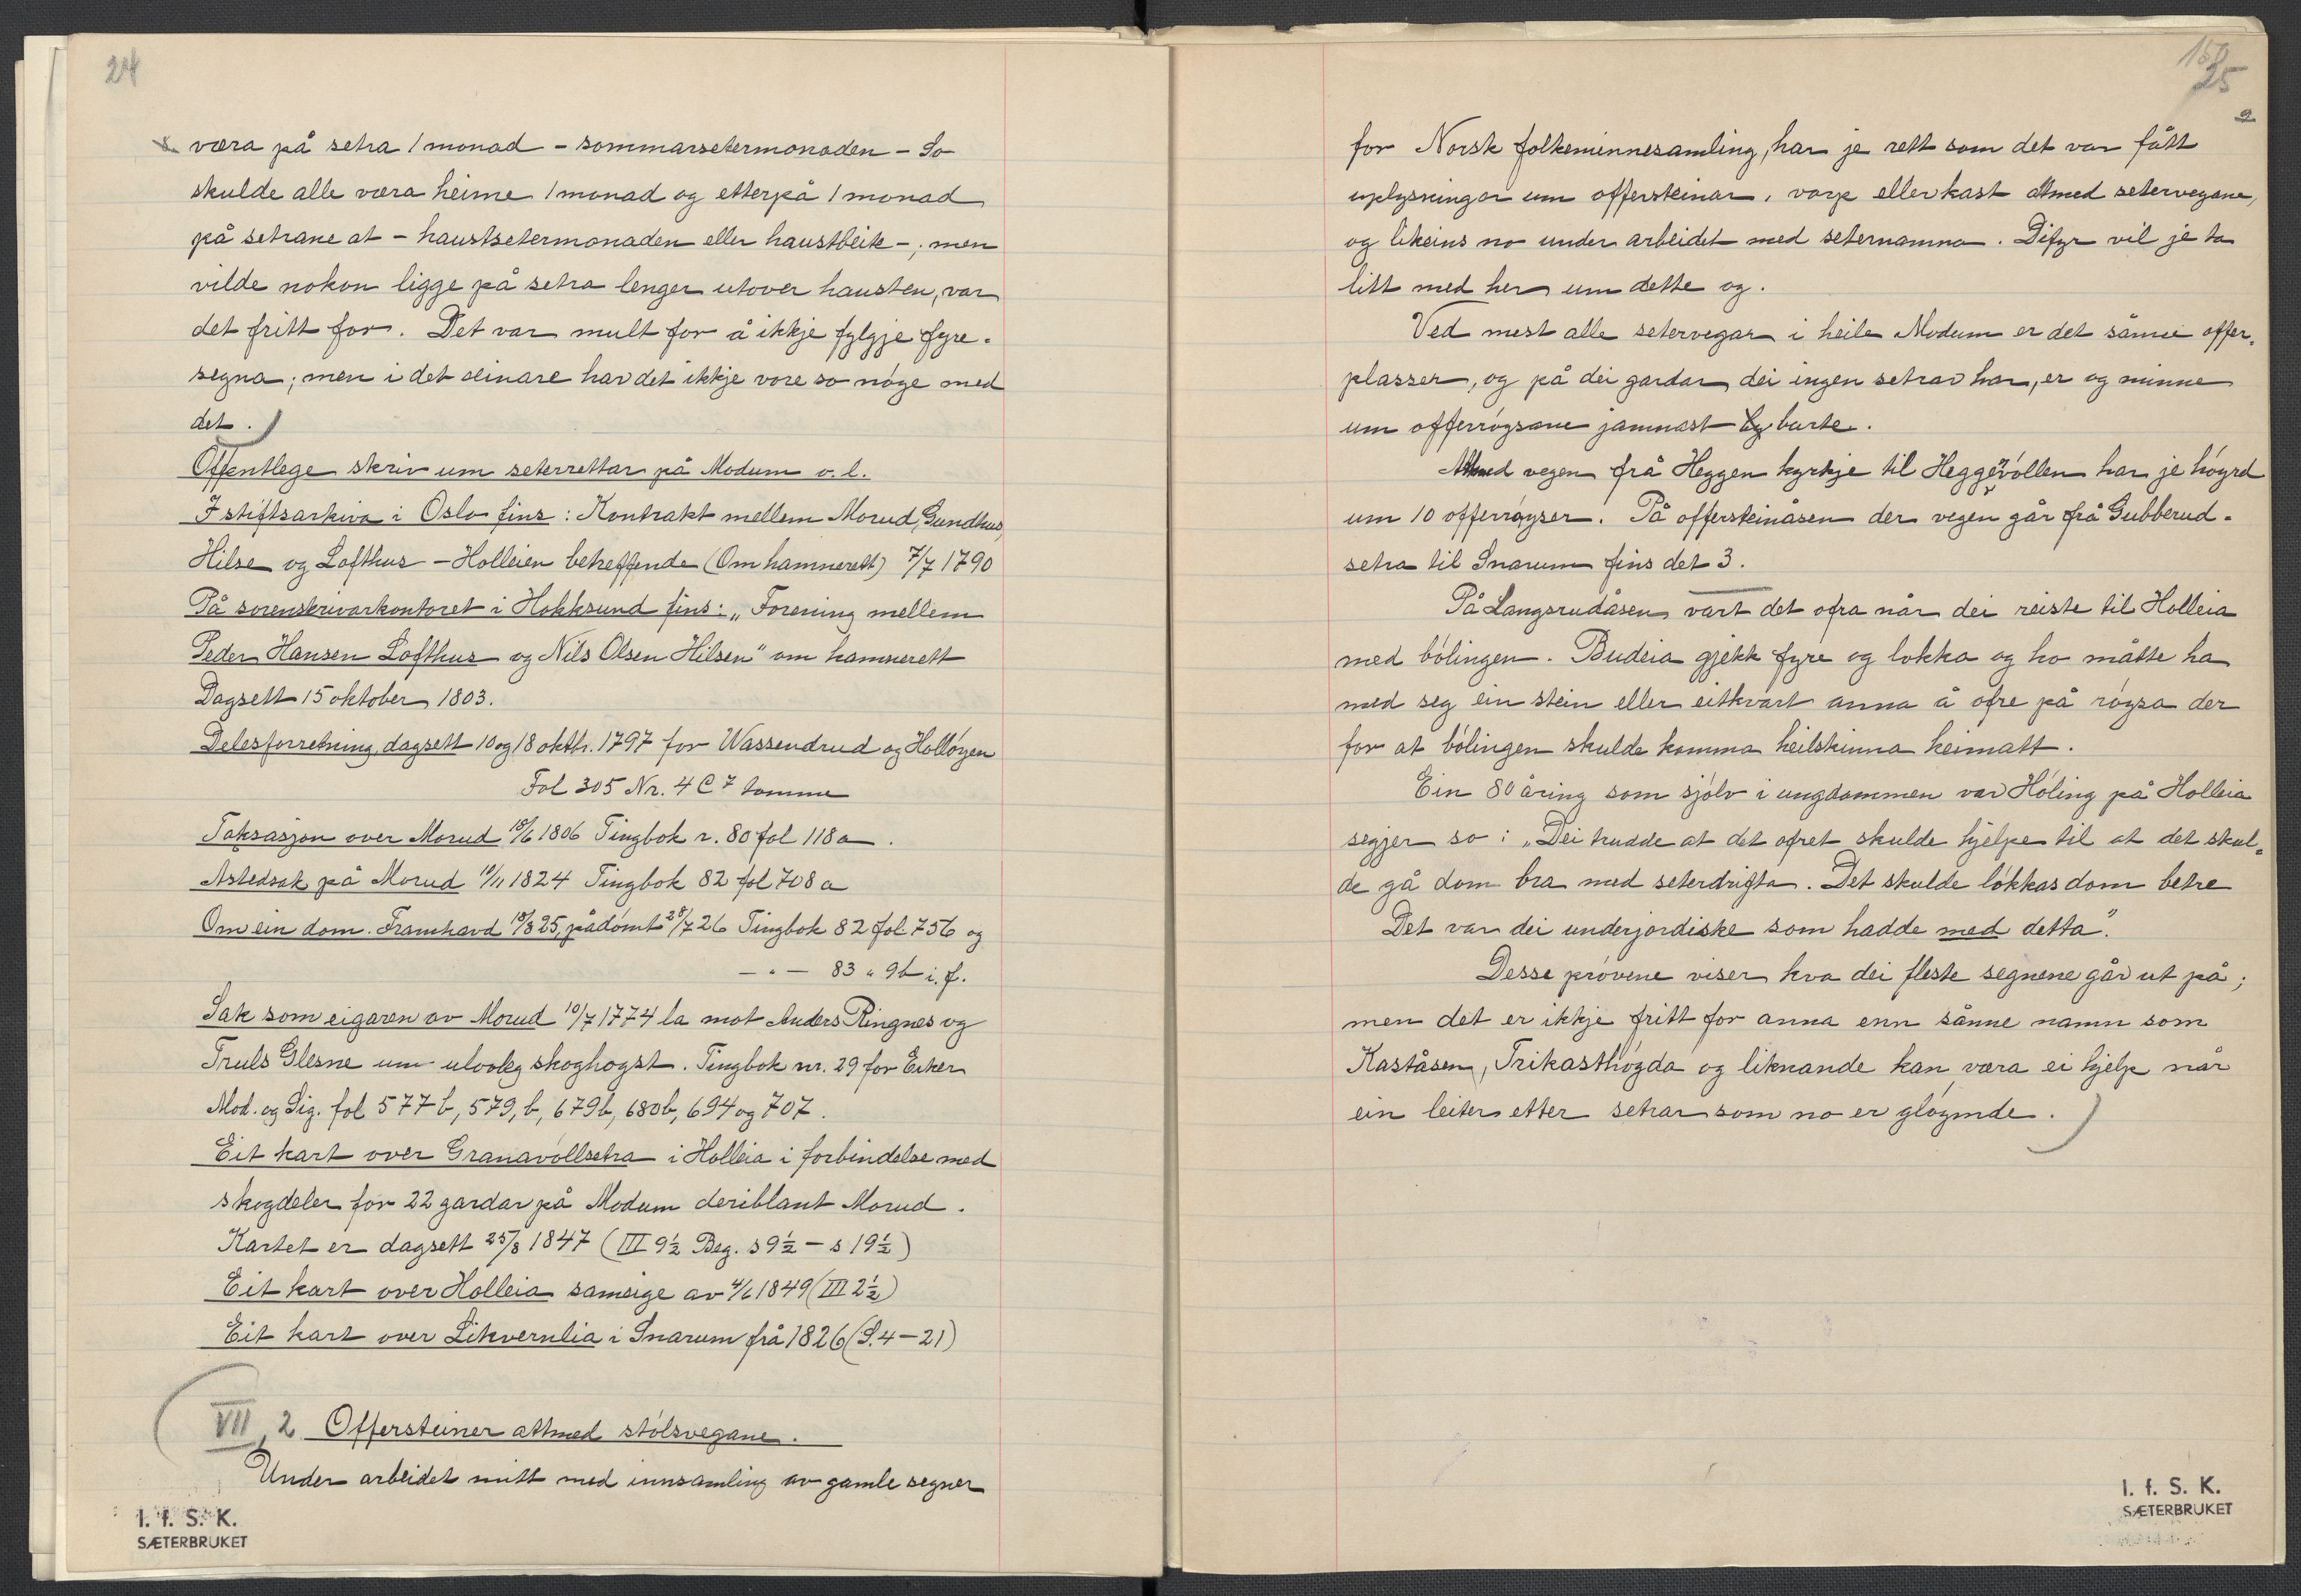 24
væra på setra 1 monad - sommarsetermonaden - So
skulde alle væra heime 1 monad og etterpå 1 monad
på setrane at - haustsetermonaden eller haustbeite -; men
vilde nokon ligge på setra lenger utover hausten, var
det fritt for. Det var mult for å ikkje fylgje fyre-
segna; men i det seinare har det ikkje vore so nøge med
det.)
Offentlege skriv um seterrettar på Modum o.l.
I stiftsarkiva i Oslo fins: Kontrakt mellem Morud, Gundhus,
Hilse og Lofthus - Holleien betreffende (Om hamnerett) 7/7 1790
På sorenskrivarkontoret i Hokksund fins: „Forening mellem
Peder Hansen Lofthus og Nils Olsen Hilsen" om hamnerett
Dagsett 15 oktober 1803.
Delesforretning dagsett 10 og 18 oktbr. 1797 for Wassendrud og Holløyen
Fol 305 Nr. 4 C 7 tomme
Taksasjon over Morud 18/6 1806 Tingbok r. 80 fol 118a.
Åstedsak på Morud 10/11 1824 Tingbok 82 fol 708 a
Om ein dom. Framhavd 18/3 25, pådømt 28/7 26 Tingbok 82 fol 756 og
- " - 83 " 9b i. f.
Sak som eigaren av Morud 10/7 1774 la mot Anders Ringnes og
Truls Glesne um ulovleg skoghogst. Tingbok nr. 29 for Eiker
Mod. og Sig. fol 577 b, 579, b, 679 b, 680 b, 694 og 707.
Eit kart over Granavøllsetra i Holleia i forbindelse med
skogdeler for 22 gardar på Modum deriblant Morud.
Kartet er dagsett 25/8 1847 (III 9½ Beg. s 9½ - s 19½)
Eit kart over Holleia sameige av 4/6 1849 (III 2½)
Eit kart over Likvernlia i Snarum frå 1826 (S. 4 - 21)
(VII, 2 Offersteiner attmed stølsvegane.
Under arbeidet mitt med innsamling av gamle segner
I. f. S. K.
SÆTERBRUKET
150
25
2
for Norsk folkeminnesamling, har je rett som det var fått
uplysningar um offersteinar, varp eller kast attmed setervegane,
og likeins no under arbeidet med seternamna. Difyr vil je ta
litt med her um dette og.
Ved mest alle setervegar i heile Modum er det sånne offer-
plasser, og på dei gardar dei ingen setrar har, er og minne
um offerrøysane jamnast burte.
Attmed vegen frå Heggen kyrkje til Heggevøllen har je høyrd
um 10 offerrøyser. På offersteinåsen der vegen går frå Gubberud-
setra til Snarum fins det 3.
På Langsrudåsen vart det ofra når dei reiste til Holleia
med bølingen. Budeia gjekk fyre og lokka og ho måtte ha
med seg ein stein eller eitkvart anna å ofre på røysa der
for at bølingen skulde komma heilskinna heimatt.
Ein 80 åring som sjølv i ungdommen var Høling på Holleia
segjer so: „Dei trudde at det ofret skulde hjelpe til at det skul-
de gå dom bra med seterdrifta. Det skulde løkkas dom betre
Det var dei underjordiske som hadde med detta".
Desse prøvene viser kva dei fleste segnene går ut på;
men det er ikkje fritt for anna enn sånne namn som
Kaståsen, Trikasthøgda og liknande kan væra ei hjelp når
ein leiter etter setrar som no er gløymde.)
I. f. S. K.
SÆTERBRUKET